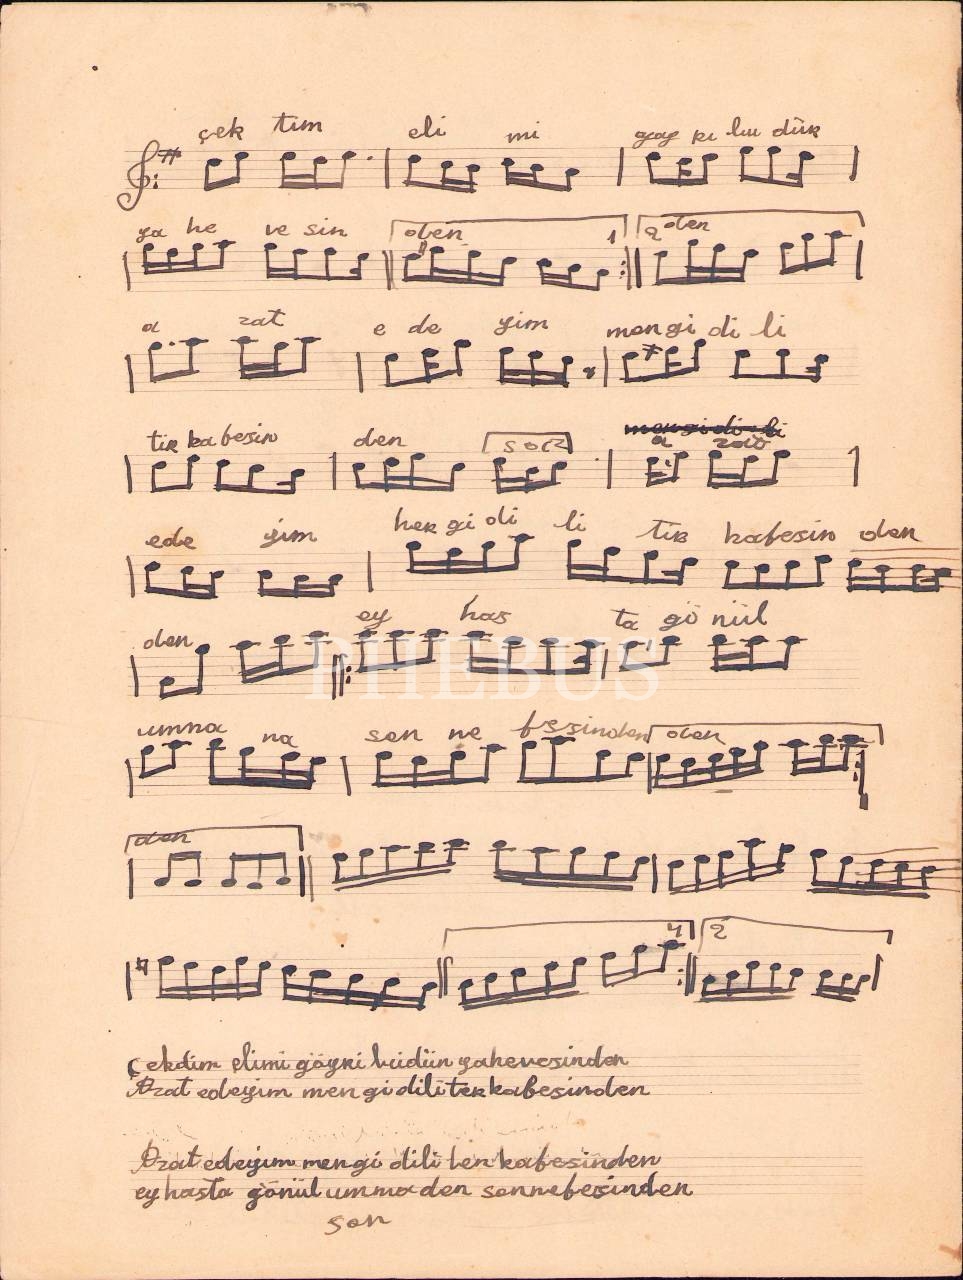 çek tım eli mi gay rı bu dük
ya he ve sin den 1 2 den
a zat e de yim men gi di li
tir kafesin den saz mengidi li a zad
ede yim her gi di li tir kafesin den
den ey has ta gö nül
umma na son ne fesinden den
den
1 2
çekdim elimi gayri yahevesinden
Azat edeyim men gi dili ter kafesinden
Azat edeyim mengi dili ten kafesinden
ey hasta gönül ummaden sonnefesinden
son
PHEBUS